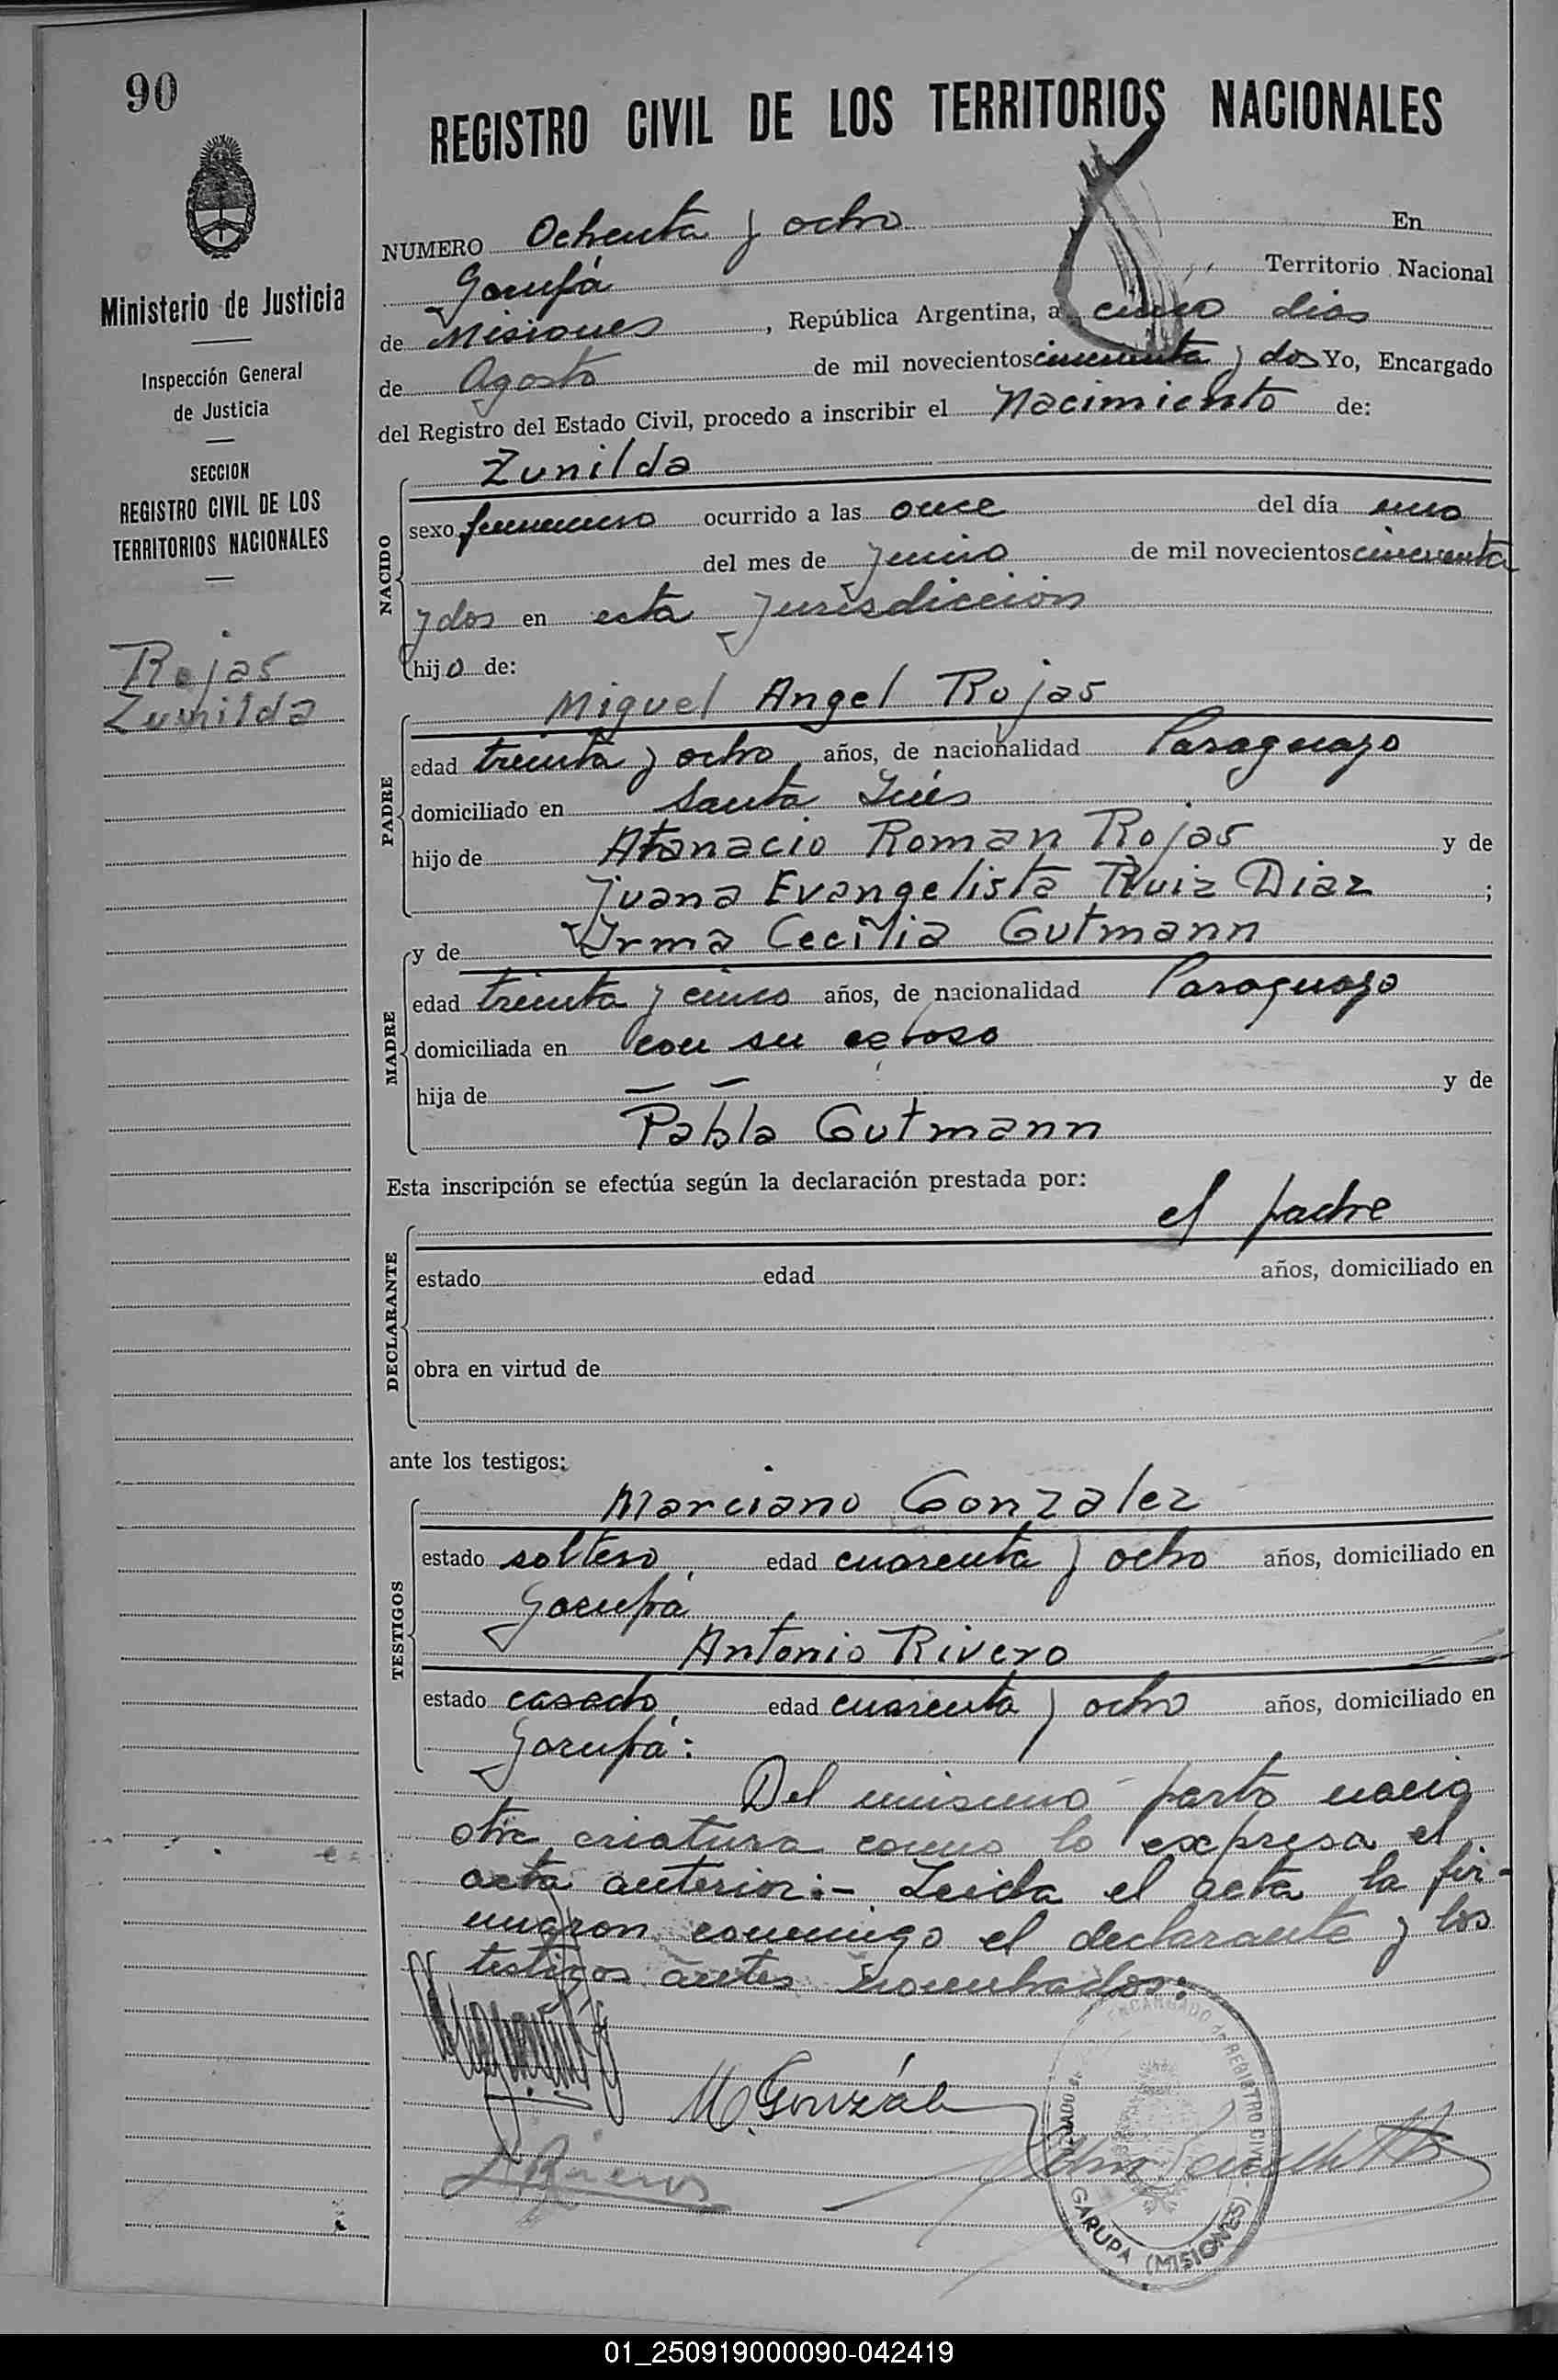 90
REGISTRO CIVIL DE LOS TERRITORIOS NACIONALES
Ministerio de Justicia
Inspección General
de Justicia
SECCION
REGISTRO CIVIL DE LOS
TERRITORIOS NACIONALES
Rojas
Zunilda
NUMERO Ochenta y ocho En
Garupá Territorio Nacional
de Misiones, República Argentina, a cinco dias
de Agosto de mil novecientos cincuenta y dos Yo, Encargado
del Registro del Estado Civil, procedo a inscribir el Nacimiento de:
NACIDO
Zunilda
sexo femenino ocurrido a las once del día uno
del mes de Junio de mil novecientos cincuenta
y dos en esta Jurisdicción
hijo de:
PADRE
Miguel Angel Rojas
edad treinta y ocho años, de nacionalidad Paraguayo
domiciliado en Santa Inés
hijo de Atanacio Roman Rojas y de
Juana Evangelista Ruiz Diaz ;
MADRE
y de Irma Cecilia Gutmann
edad treinta y cinco años, de nacionalidad Paraguayo
domiciliada en con su esposo
hija de — — y de
Pabla Gutmann
Esta inscripción se efectúa según la declaración prestada por:
DECLARANTE
el padre
estado edad años, domiciliado en
obra en virtud de
ante los testigos:
TESTIGOS
Marciano Gonzalez
estado soltero edad cuarenta y ocho años, domiciliado en
Garupá
Antonio Rivero
estado casado, edad cuarenta y ocho años, domiciliado en
Garupá:
Del mismo parto nacio
otra criatura como lo expresa el
acta anterior:- Leida el acta la fir-
maron conmigo el declarante y los
testigos antes nombrados:
M. Gonzál
ENCARGADO de REGISTRO CIVIL
GARUPA (MISIONES)
01_250919000090-042419